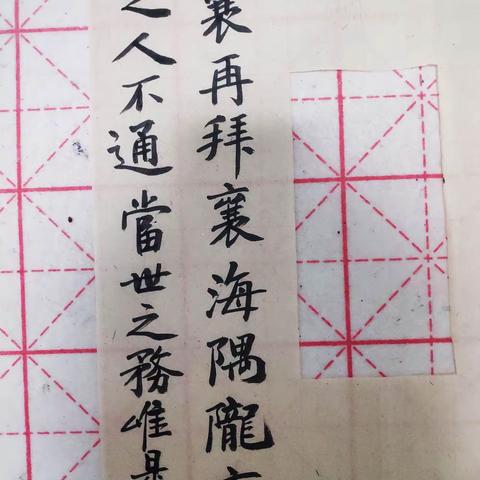 襄再拜襄海隅隴
之人不通當世之務唯是